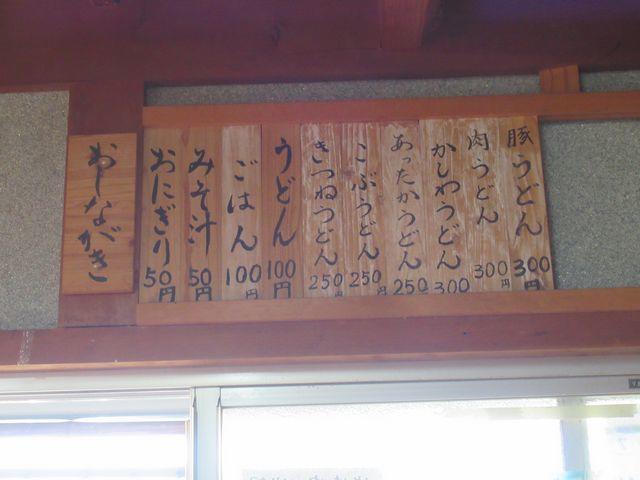 豚うどん 300円
肉うどん 300円
かしわうどん 300
あったかうどん 250
こぶうどん 250円
きつねうどん 250円
うどん 100円
ごはん 100円
みそ汁 50円
おにぎり 50円
おしながき